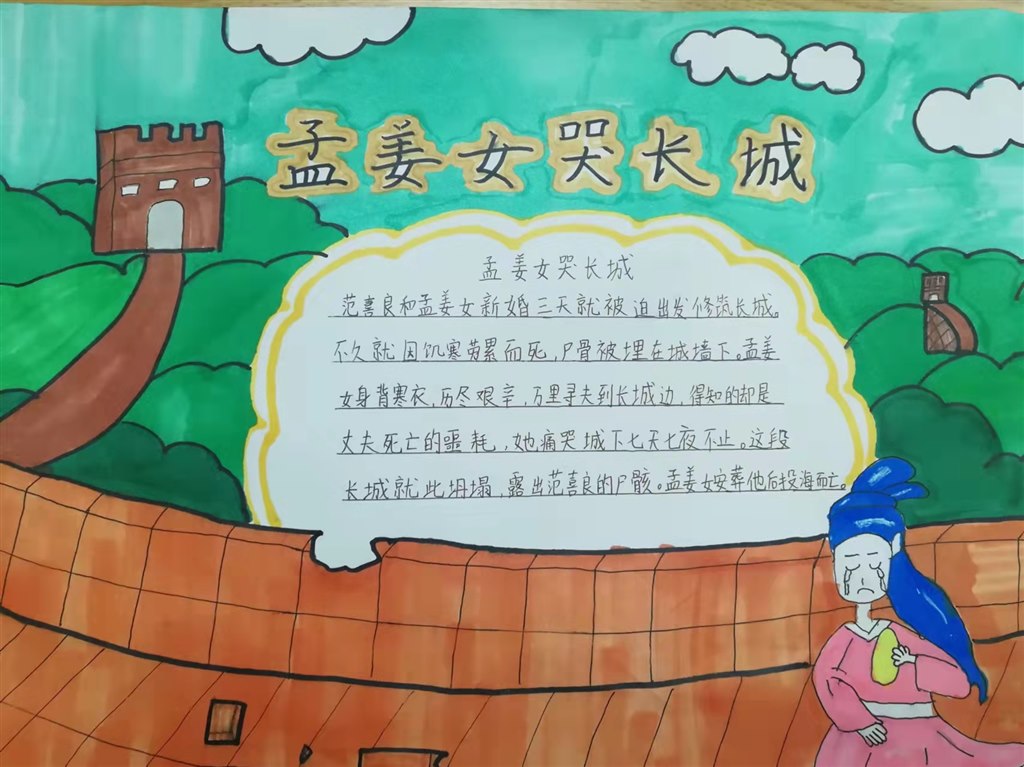 孟姜女哭长城
孟姜女哭长城
范喜良和孟姜女新婚三天就被迫出发修筑长城。
不久就因饥寒劳累而死,尸骨被埋在城墙下。孟姜
女身背寒衣,历尽艰辛,万里寻夫到长城边,得知的却是
丈夫死亡的噩耗,她痛哭城下七天七夜不止。这段
长城就此坍塌,露出范喜良的尸骸。孟姜女安葬他后投海而亡。